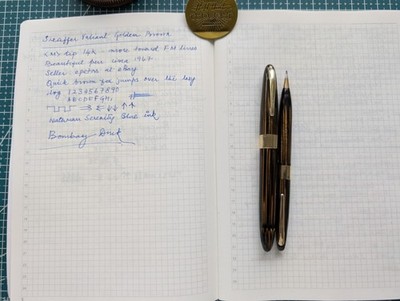 Sheaffer Valiant Golden Brown
14k tip more toward F.M lines
Beautiful pen circa 1947
Seller
Quick brown fox jumps over the lazy
dog 1234567890
ABCDEFGHI
Waterman Serenity Blue ink
Bombay Dock